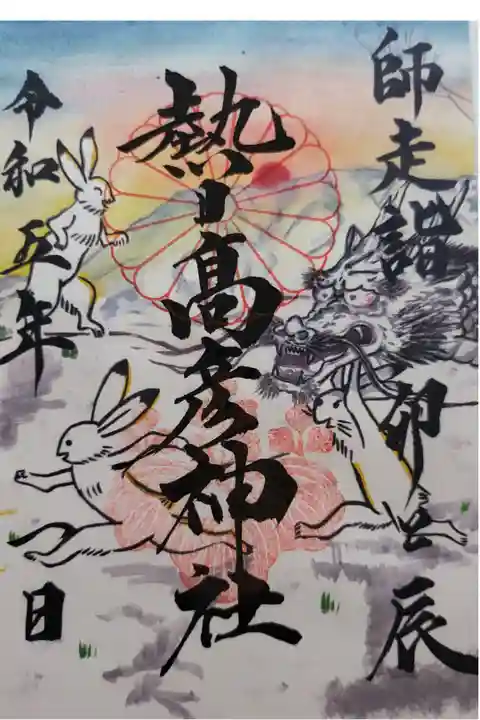 師走詣 卯と辰
熱日高彦神社
令和五年 一日